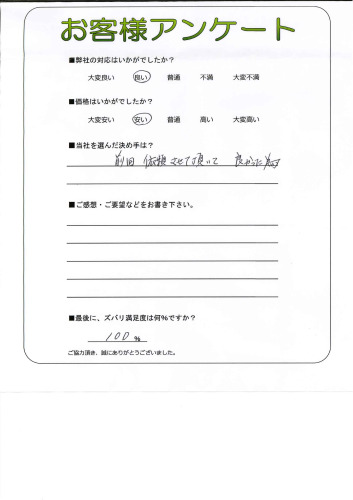 お客様アンケート
■弊社の対応はいかがでしたか？
大変良い 良い 普通 不満 大変不満
■価格はいかがでしたか？
大変安い 安い 普通 高い 大変高い
■当社を選んだ決め手は？
前回 依頼させて頂いて 良かった為
■ご感想・ご要望などをお書き下さい。
■最後に、ズバリ満足度は何%ですか？
100 %
ご協力頂き、誠にありがとうございました。